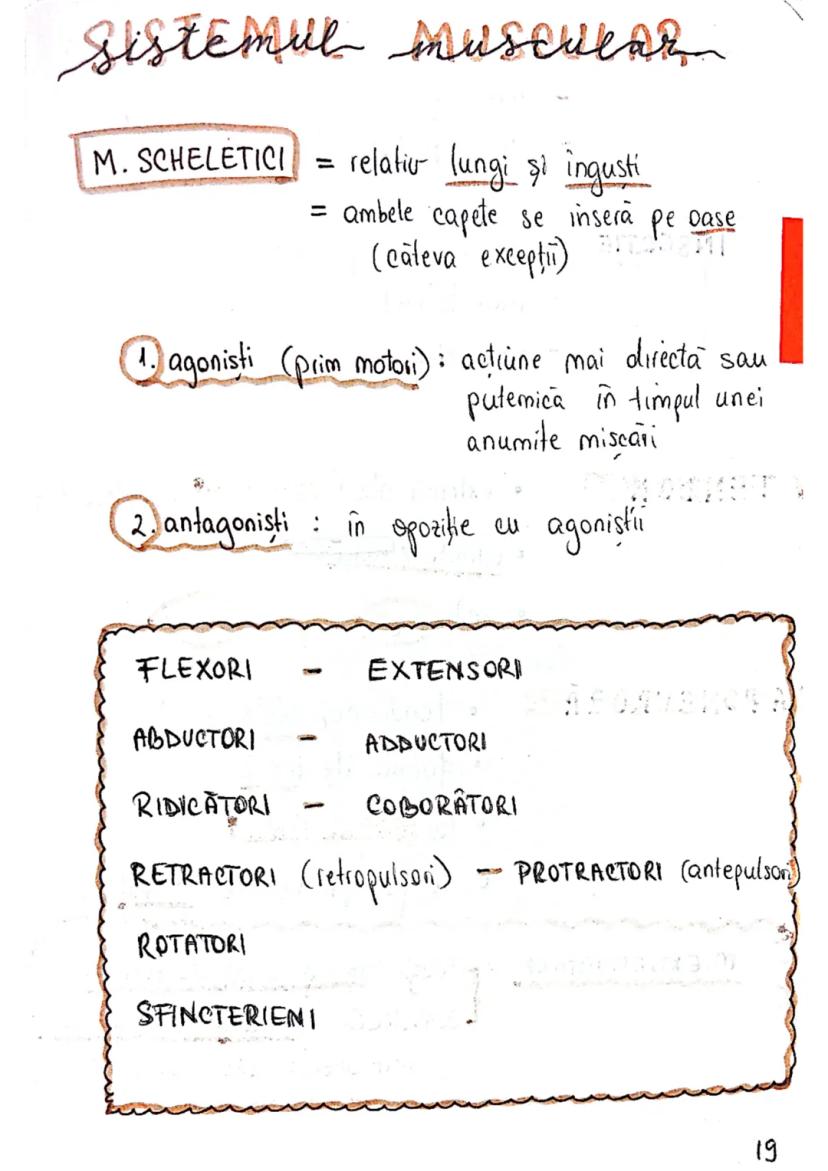 SISTEMUL MUSCULAR
sistemul muscular
M. SCHELETICI = relativ lungi și înguști
= ambele capete se inseră pe oase
(câteva excepții)
1. agoniști (prim motori): acțiune mai directă sau
puternică în timpul unei
anumite mișcări
2. antagoniști : în opoziție cu agoniștii
FLEXORI - EXTENSORI
ABDUCTORI - ADDUCTORI
RIDICĂTORI - COBORÂTORI
RETRACTORI (retropulsori) - PROTRACTORI (antepulsori)
ROTATORI
SFINCTERIENI
19